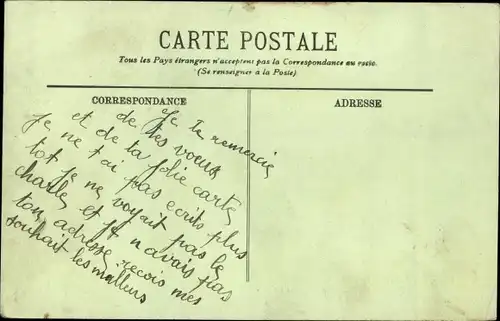 CARTE POSTALE
Tous les Pays étrangers n'acceptent pas la Correspondance au recto.
(Se renseigner à la Poste)
CORRESPONDANCE
ADRESSE
Je te remercie
de tes voeux
et de ta jolie carte
Je ne t'ai pas ecrit plus
tot je ne voyait pas le
charles et Je n'avais pas
ton adresse recois mes
souhait les meilleurs